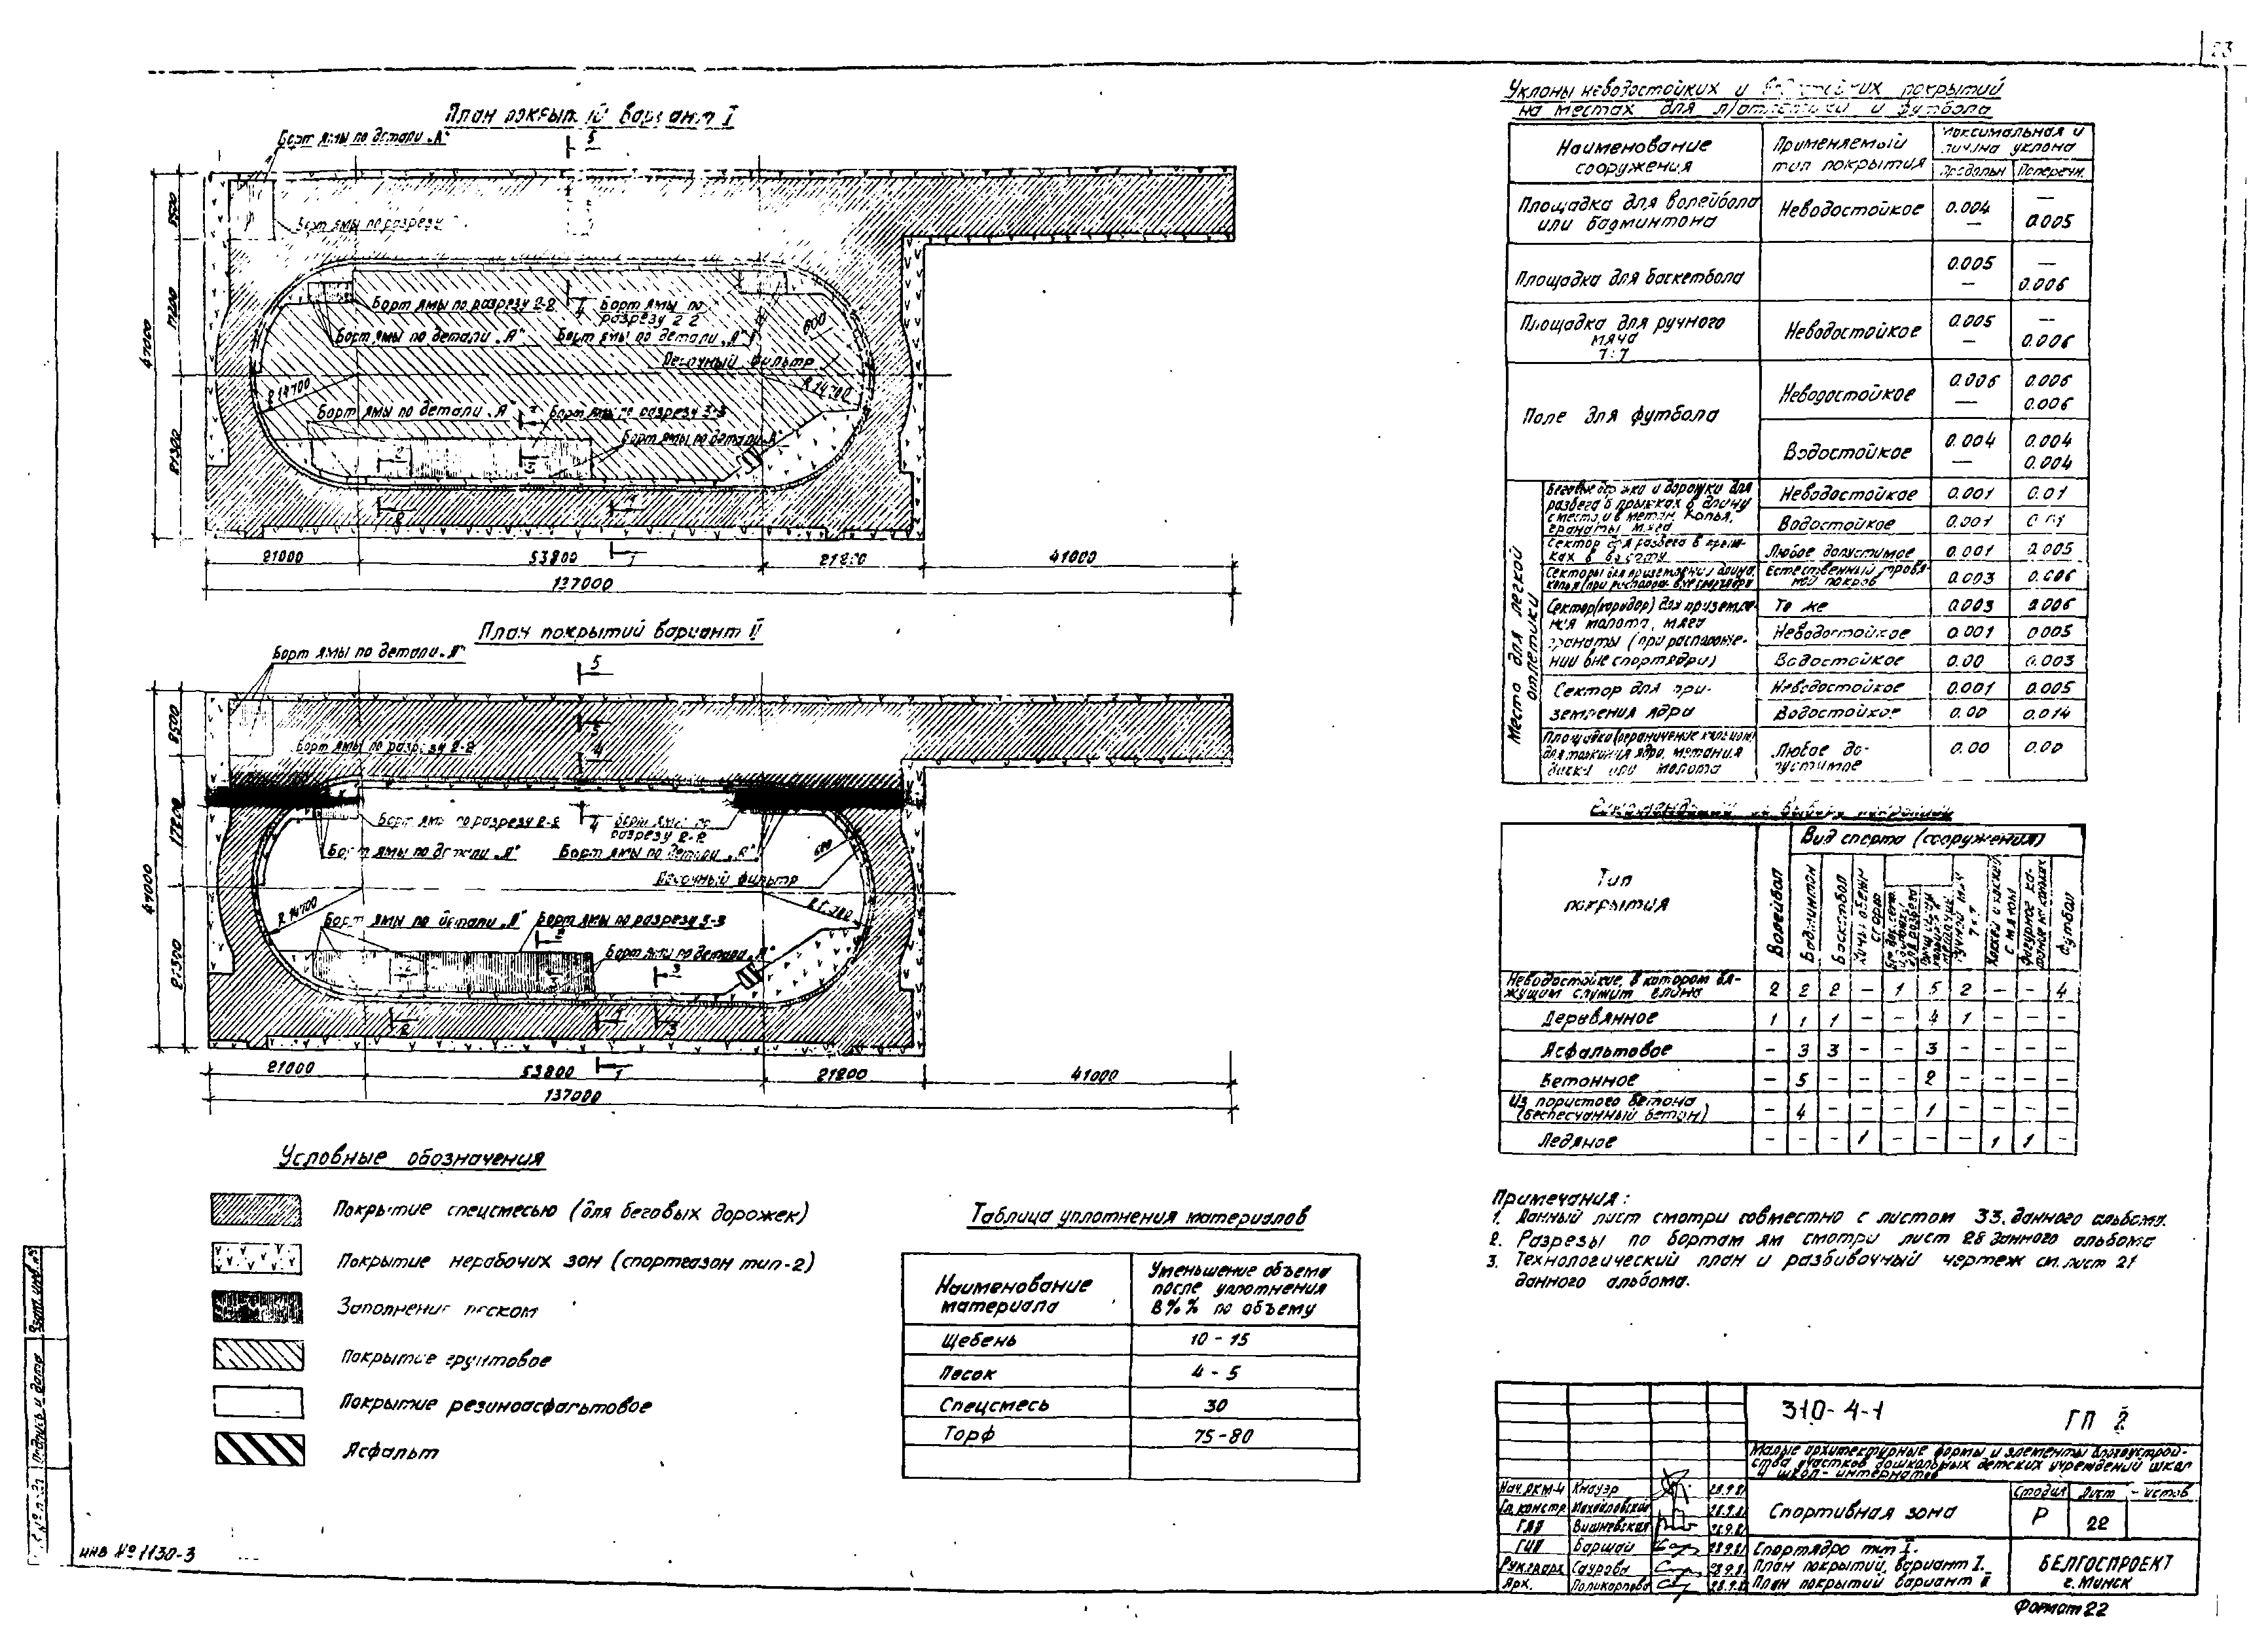 23
План покрытий вариант I
Борт ямы по детали „А"
5
Борт ямы по разрезу
8500
17200
47000
21300
Борт ямы по разрезу 2-2
Борт ямы по
разрезу 2-2
Борт ямы по детали „А"
Борт ямы по детали „А"
600
Песочный фильтр
R 14700
R 14700
Борт ямы по детали „А"
Борт ямы по разрезу 3-3
Борт ямы по детали „А"
2
1
21000
53800
21200
41000
137000
План покрытий вариант II
Борт ямы по детали „А"
5
Борт ямы по разрезу 2-2
5
4
8500
17200
47000
21300
Борт ямы по разрезу 2-2
4
Борт ямы по
разрезу 2-2
Борт ямы по детали „А"
Борт ямы по детали „А"
600
Песочный фильтр
R 14700
Борт ямы по детали „А"
Борт ямы по разрезу 3-3
Борт ямы по детали „А"
3
2
1
3
21000
53800
1
21200
41000
137000
Условные обозначения
Покрытие спецсмесью (для беговых дорожек)
Покрытие нерабочих зон (спортгазон тип-2)
Заполнение песком
Покрытие грунтовое
Покрытие резиноасфальтовое
Асфальт
Таблица уплотнения материалов
Наименование
материала
Уменьшение объема
после уплотнения
в %% по объему
Щебень 10 - 15
Песок 4 - 5
Спецсмесь 30
Торф 75-80
Уклоны неводостойких и водостойких покрытий
на местах для л/атлетики и футбола
Наименование
сооружения
Применяемый
тип покрытия
Максимальная и
личина уклона
Продольн Поперечн.
Площадка для волейбола
или бадминтона
Неводостойкое 0.004 —
— 0.005
Площадка для баскетбола
0.005 —
— 0.006
Площадка для ручного
мяча
7:7
Неводостойкое 0.005 —
— 0.006
Поле для футбола
Неводостойкое 0.006 0.006
— 0.006
Водостойкое 0.004 0.004
— 0.004
Места для легкой
атлетики
Беговые дорожка и дорожки для
разбега в прыжках в длину
с места, и в метан. копья,
гранаты, мяча
Неводостойкое 0.001 0.01
Водостойкое 0.001 0.01
Сектор для разбега в прыж-
ках в высоту
Любое допустимое 0.001 0.005
Естественный травя-
ной покров 0.003 0.006
Сектор(коридор) для приземле-
ния молота, мяча
гранаты (при расположе-
нии вне спортядра)
То же 0.003 0.006
Неводостойкое 0.001 0.005
Водостойкое 0.00 0.003
Сектор для при-
земления ядра
Неводостойкое 0.001 0.005
Водостойкое 0.00 0.014
для толкания ядра, метания
диска или молота
Любое до-
пустимое 0.00 0.00
Тип
покрытия
Вид спорта (сооружения)
Волейбол
Бадминтон
Баскетбол
7:7
с мячом
Футбол
Неводостойкое, в котором вя-
жущим служит глина 2 2 2 – 1 5 2 – – 4
Деревянное 1 1 1 – – 4 1 – – –
Асфальтовое – 3 3 – – 3 – – – –
Бетонное – 5 – – – 2 – – – –
Из пористого бетона
(беспесчанный бетон) – 4 – – – 1 – – – –
Ледяное – – – 1 – – – 1 1 –
Примечания:
1. Данный лист смотри совместно с листом 33, данного альбома.
2. Разрезы по бортам ям смотри лист 28 данного альбома
3. Технологический план и разбивочный чертеж см. лист 21
данного альбома.
310-4-1 ГП 2
Малые архитектурные формы и элементы благоустрой-
ства участков дошкольных детских учреждений школ
и школ-интернатов
Нач. АКМ-4 Кнауэр 28.9.81
Гл. констр. Михайловская 28.9.81
ГАП Вишневская 28.9.81
ГИП Баршай 28.9.81
Рук.гр.арх. Саурова 28.9.81
Арх. Поликарпова 28.9.81
Спортивная зона
Стадия Лист Листов
Р 22
Спортядро тип I.
План покрытий, вариант I.
План покрытий вариант II
БЕЛГОСПРОЕКТ
г. Минск
Формат 22
Взам. инв. №
Подпись и дата
инв № 1130-3